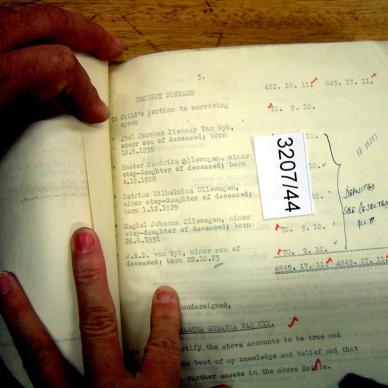 3.
BROUGHT FORWARD 422. 18. 11. 845. 17. 11.
To Child's portion to surviving
spouse 70. 9. 10.
" Abel Jacobus Pienaar Van Wyk,
minor son of deceased; born
" Hester Hendrika Ollewagen, minor
step-daughter of deceased; born
4.12.1928
" Catrina Wilhelmina Ollewagen,
minor step-daughter of deceased;
born 1.12.1929
" Johanna Ollewagen, minor
step-daughter of deceased; born
26.8.1931 70. 9. 10.
van Wyk, minor son of
deceased; born 22.10.23 70. 9. 10.
£845. 17. 11 £845. 17. 11.
3207/44
undersigned,
MARTHA SUSANNA VAN WYK.
certify the above accounts to be true and
the best of my knowledge and belief and that
further assets in the above Estate.